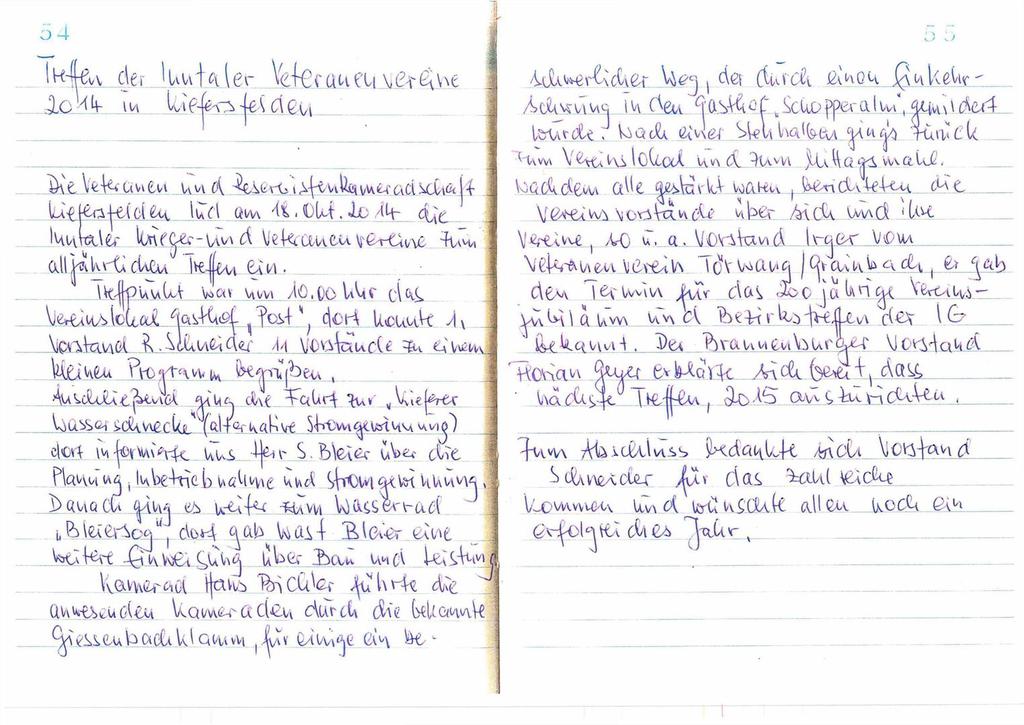 54
Treffen der Inntaler Veteranenvereine
2014 in Kiefersfelden
Die Veteranen und Reservistenkameradschaft
Kiefersfelden lud am 18. Okt. 2014 die
Inntaler Krieger- und Veteranenvereine zum
alljährlichen Treffen ein.
Treffpunkt war um 10.00 Uhr das
Vereinslokal Gasthof „Post", dort konnte 1.
Vorstand R. Schneider 11 Vorstände zu einem
kleinen Programm begrüßen.
Anschließend ging die Fahrt zur „Kieferer
Wasserschnecke" (alternative Stromgewinnung)
dort informierte uns Herr S. Bleier über die
Planung, Inbetriebnahme und Stromgewinnung.
Danach ging es weiter zum Wasserrad
„Bleiersog", dort gab Wast Bleier eine
weitere Einweisung über Bau und Leistung
Kamerad Hans Bichler führte die
anwesenden Kameraden durch die bekannte
Giessenbachklamm, für einige ein be-
55
schwerlicher Weg, der durch einen Einkehr-
schwung in den Gasthof „Schopperalm", gemildert
wurde. Nach einer Stehhalben ging's zurück
zum Vereinslokal und zum Mittagsmahl.
Nachdem alle gestärkt waren, berichteten die
Vereinsvorstände über sich und ihre
Vereine, so u. a. Vorstand Irger vom
Veteranenverein Törwang/Grainbach, er gab
den Termin für das 200 jährige Vereins-
jubiläum und Bezirkstreffen der IG
bekannt. Der Brannenburger Vorstand
Florian Geyer erklärte sich bereit, dass
nächste Treffen, 2015 auszurichten.
Zum Abschluss bedankte sich Vorstand
Schneider für das zahlreiche
Kommen und wünschte allen noch ein
erfolgreiches Jahr.